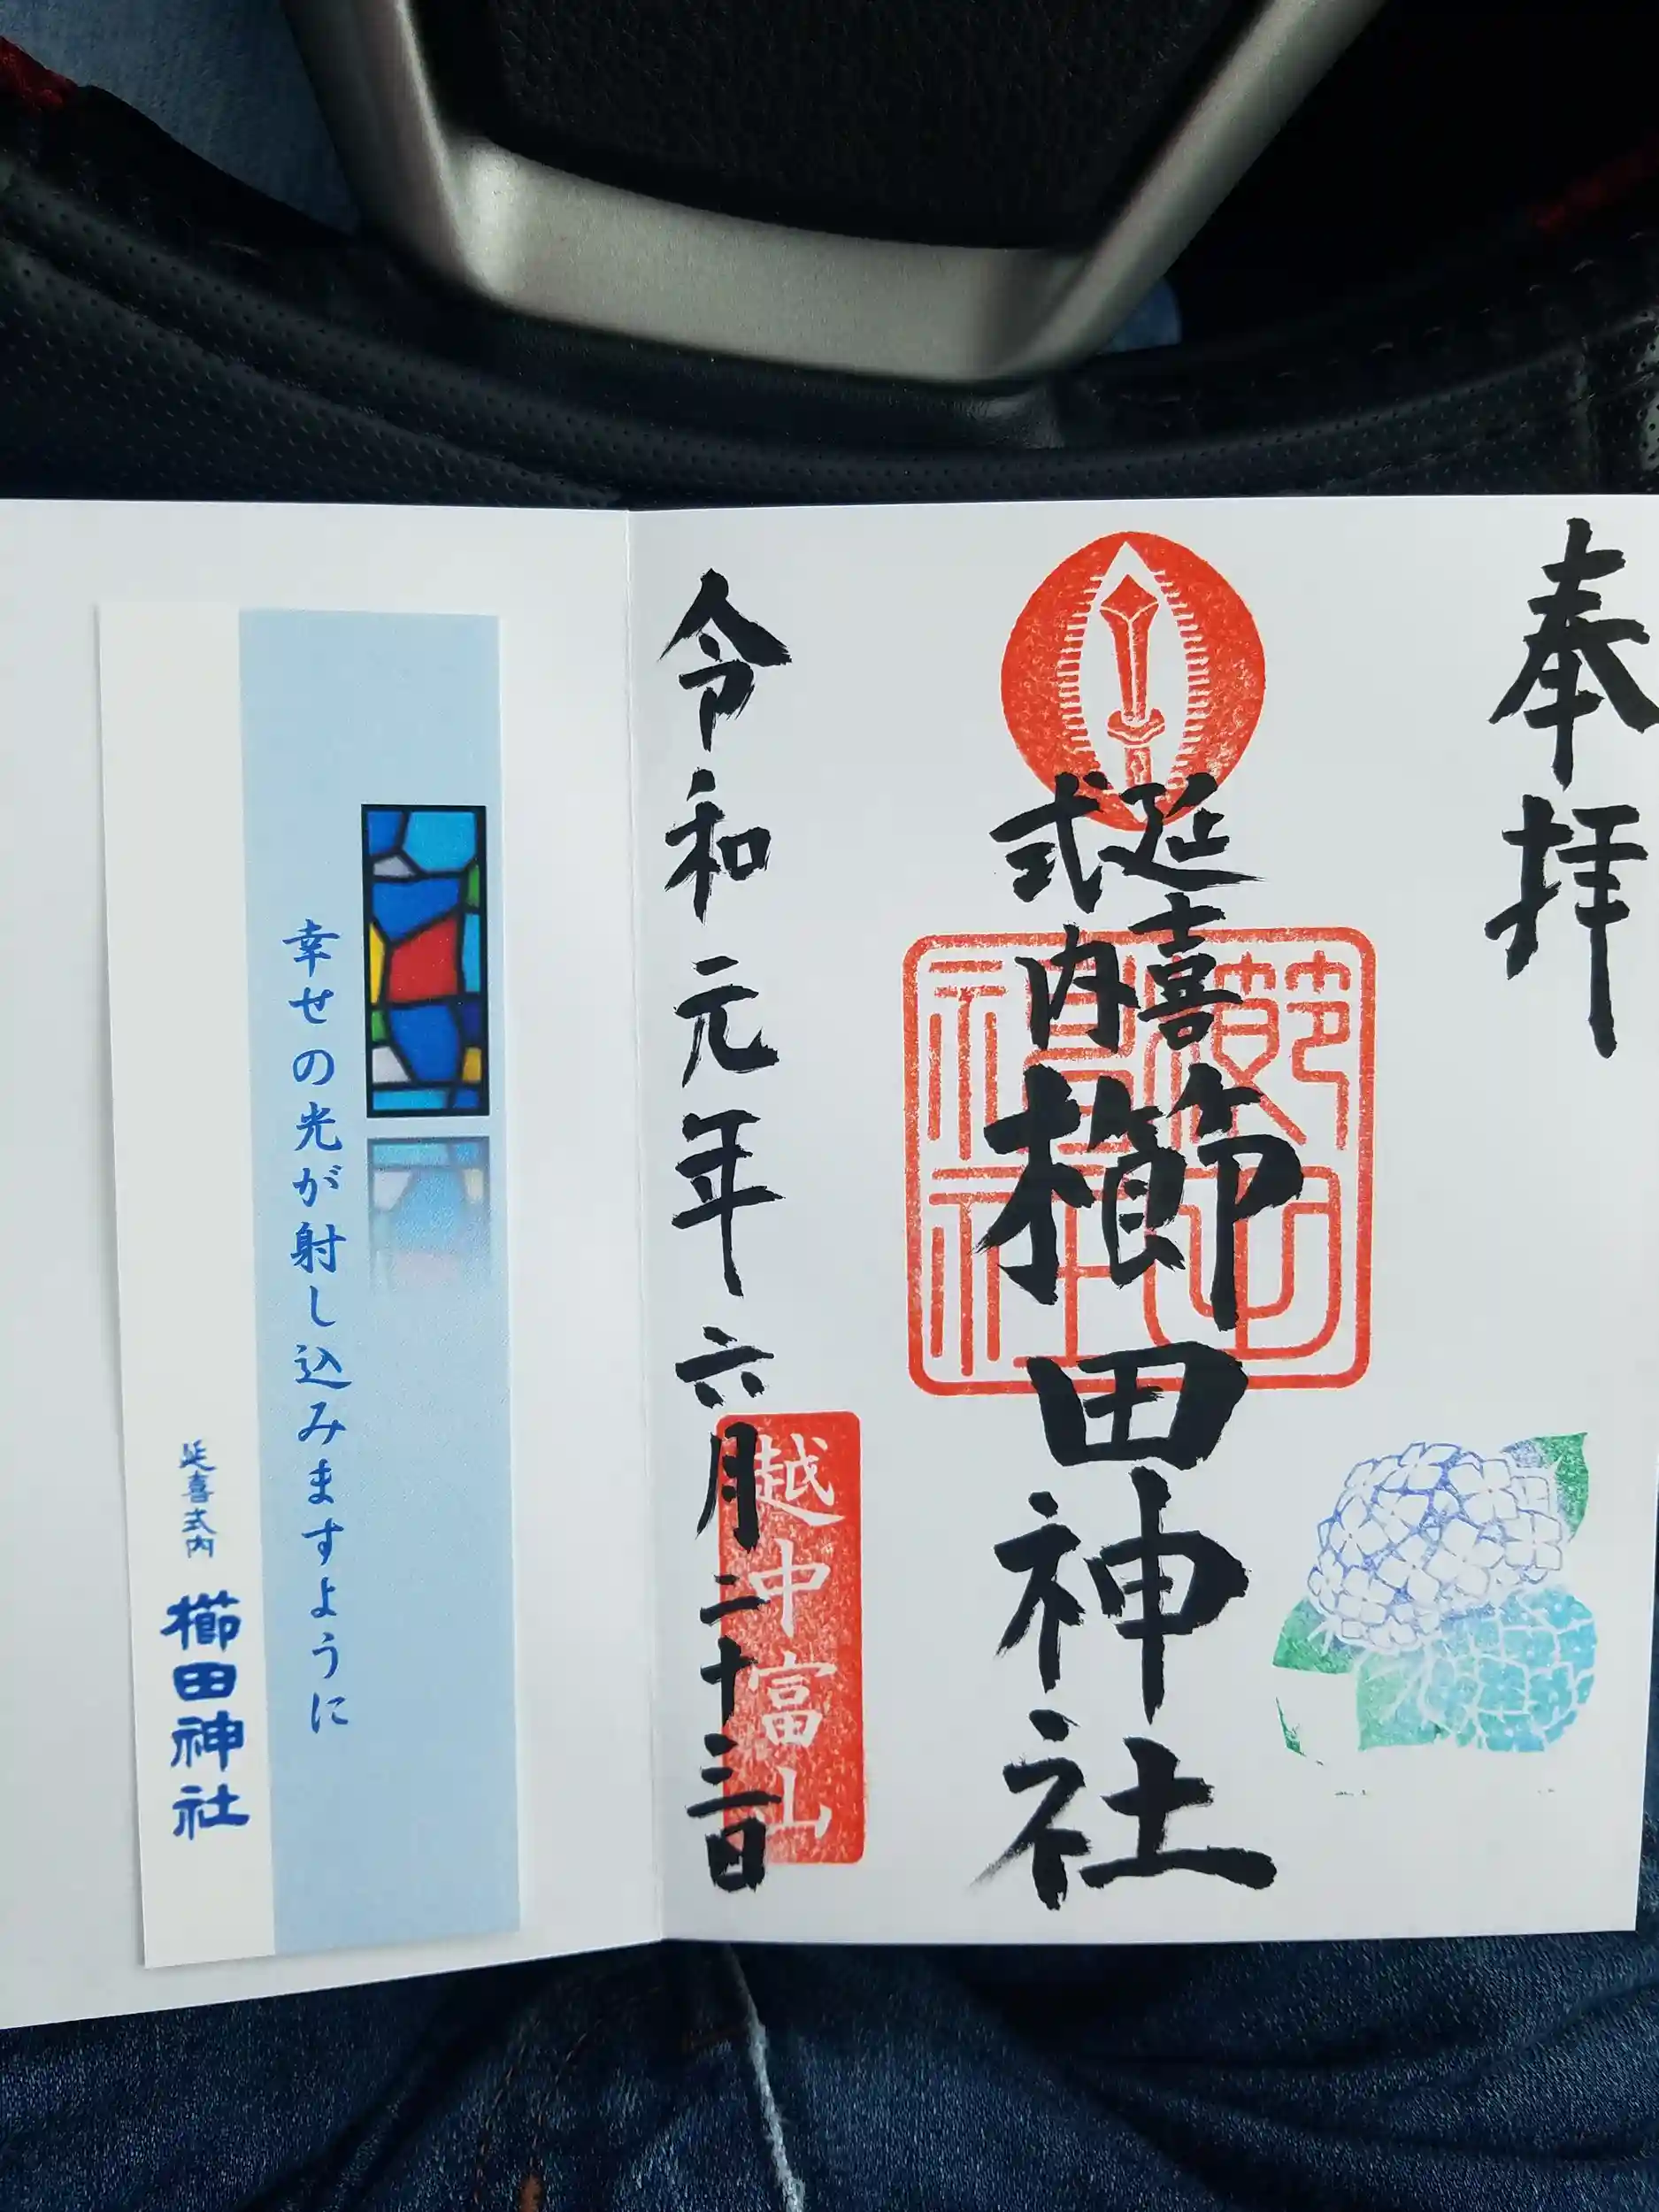 奉拝
延喜
式内
櫛田神社
越中富山
令和元年六月二十三日
幸せの光が射し込みますように
延喜式内 櫛田神社